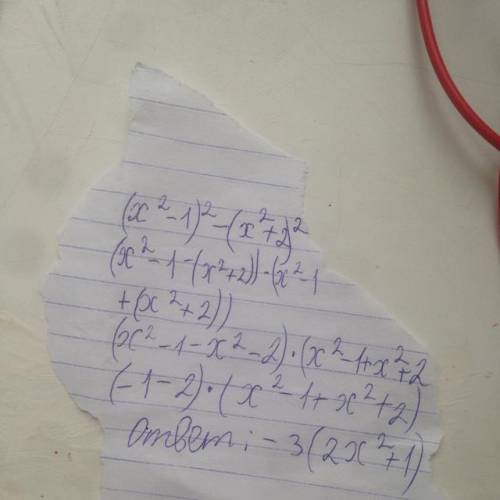 (x²-1)²-(x²+2)²
(x²-1-(x²+2))·(x²-1
+(x²+2))
(x²-1-x²-2)·(x²-1+x²+2
(-1-2)·(x²-1+x²+2)
ответ: -3(2x²+1)